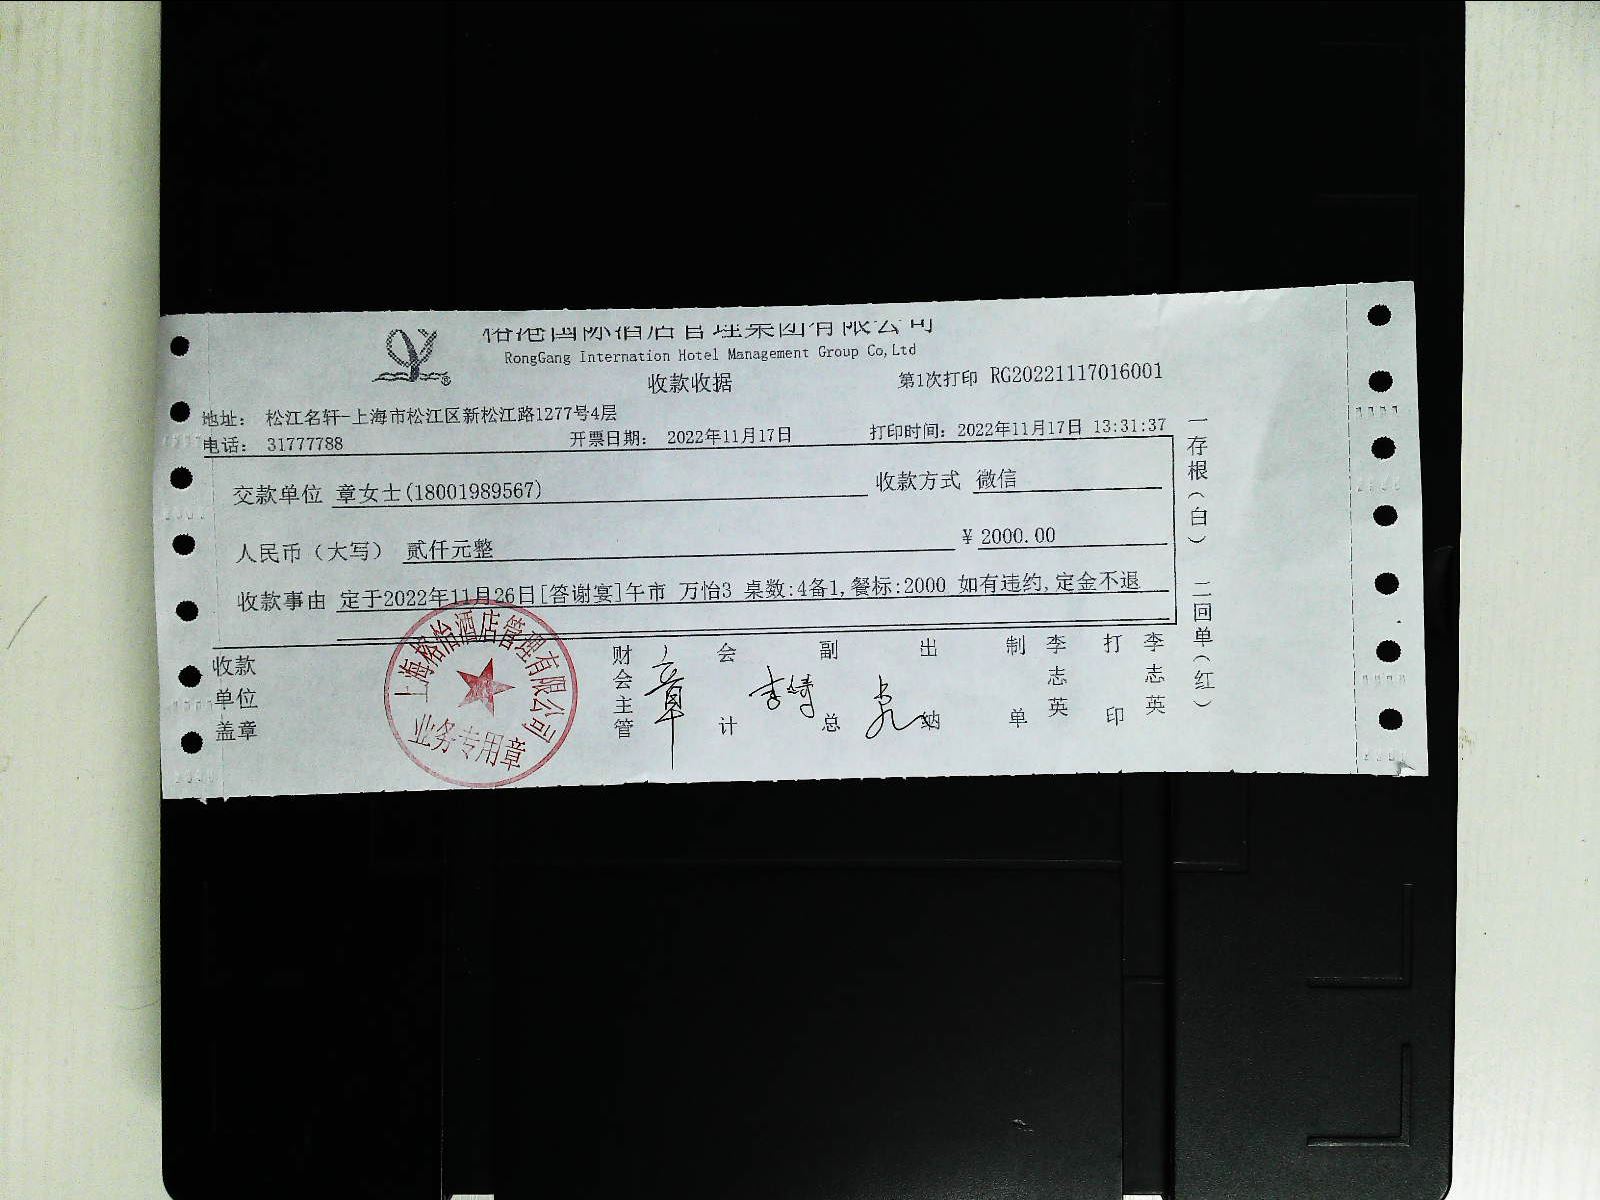 榕港国际酒店管理集团有限公司
RongGang Internation Hotel Management Group Co,Ltd
收款收据
第1次打印 RG20221117016001
地址： 松江名轩-上海市松江区新松江路1277号4层
电话： 31777788 开票日期： 2022年11月17日 打印时间：2022年11月17日 13:31:37
交款单位 章女士(18001989567) 收款方式 微信
人民币（大写） 贰仟元整 ¥ 2000.00
收款事由 定于2022年11月26日[答谢宴]午市 万怡3 桌数:4备1,餐标:2000 如有违约,定金不退
一存根（白） 二回单（红）
收款单位盖章
上海榕怡酒店管理有限公司
业务专用章
财会主管 章 会计 副总 出纳 制单 李志英 打印 李志英